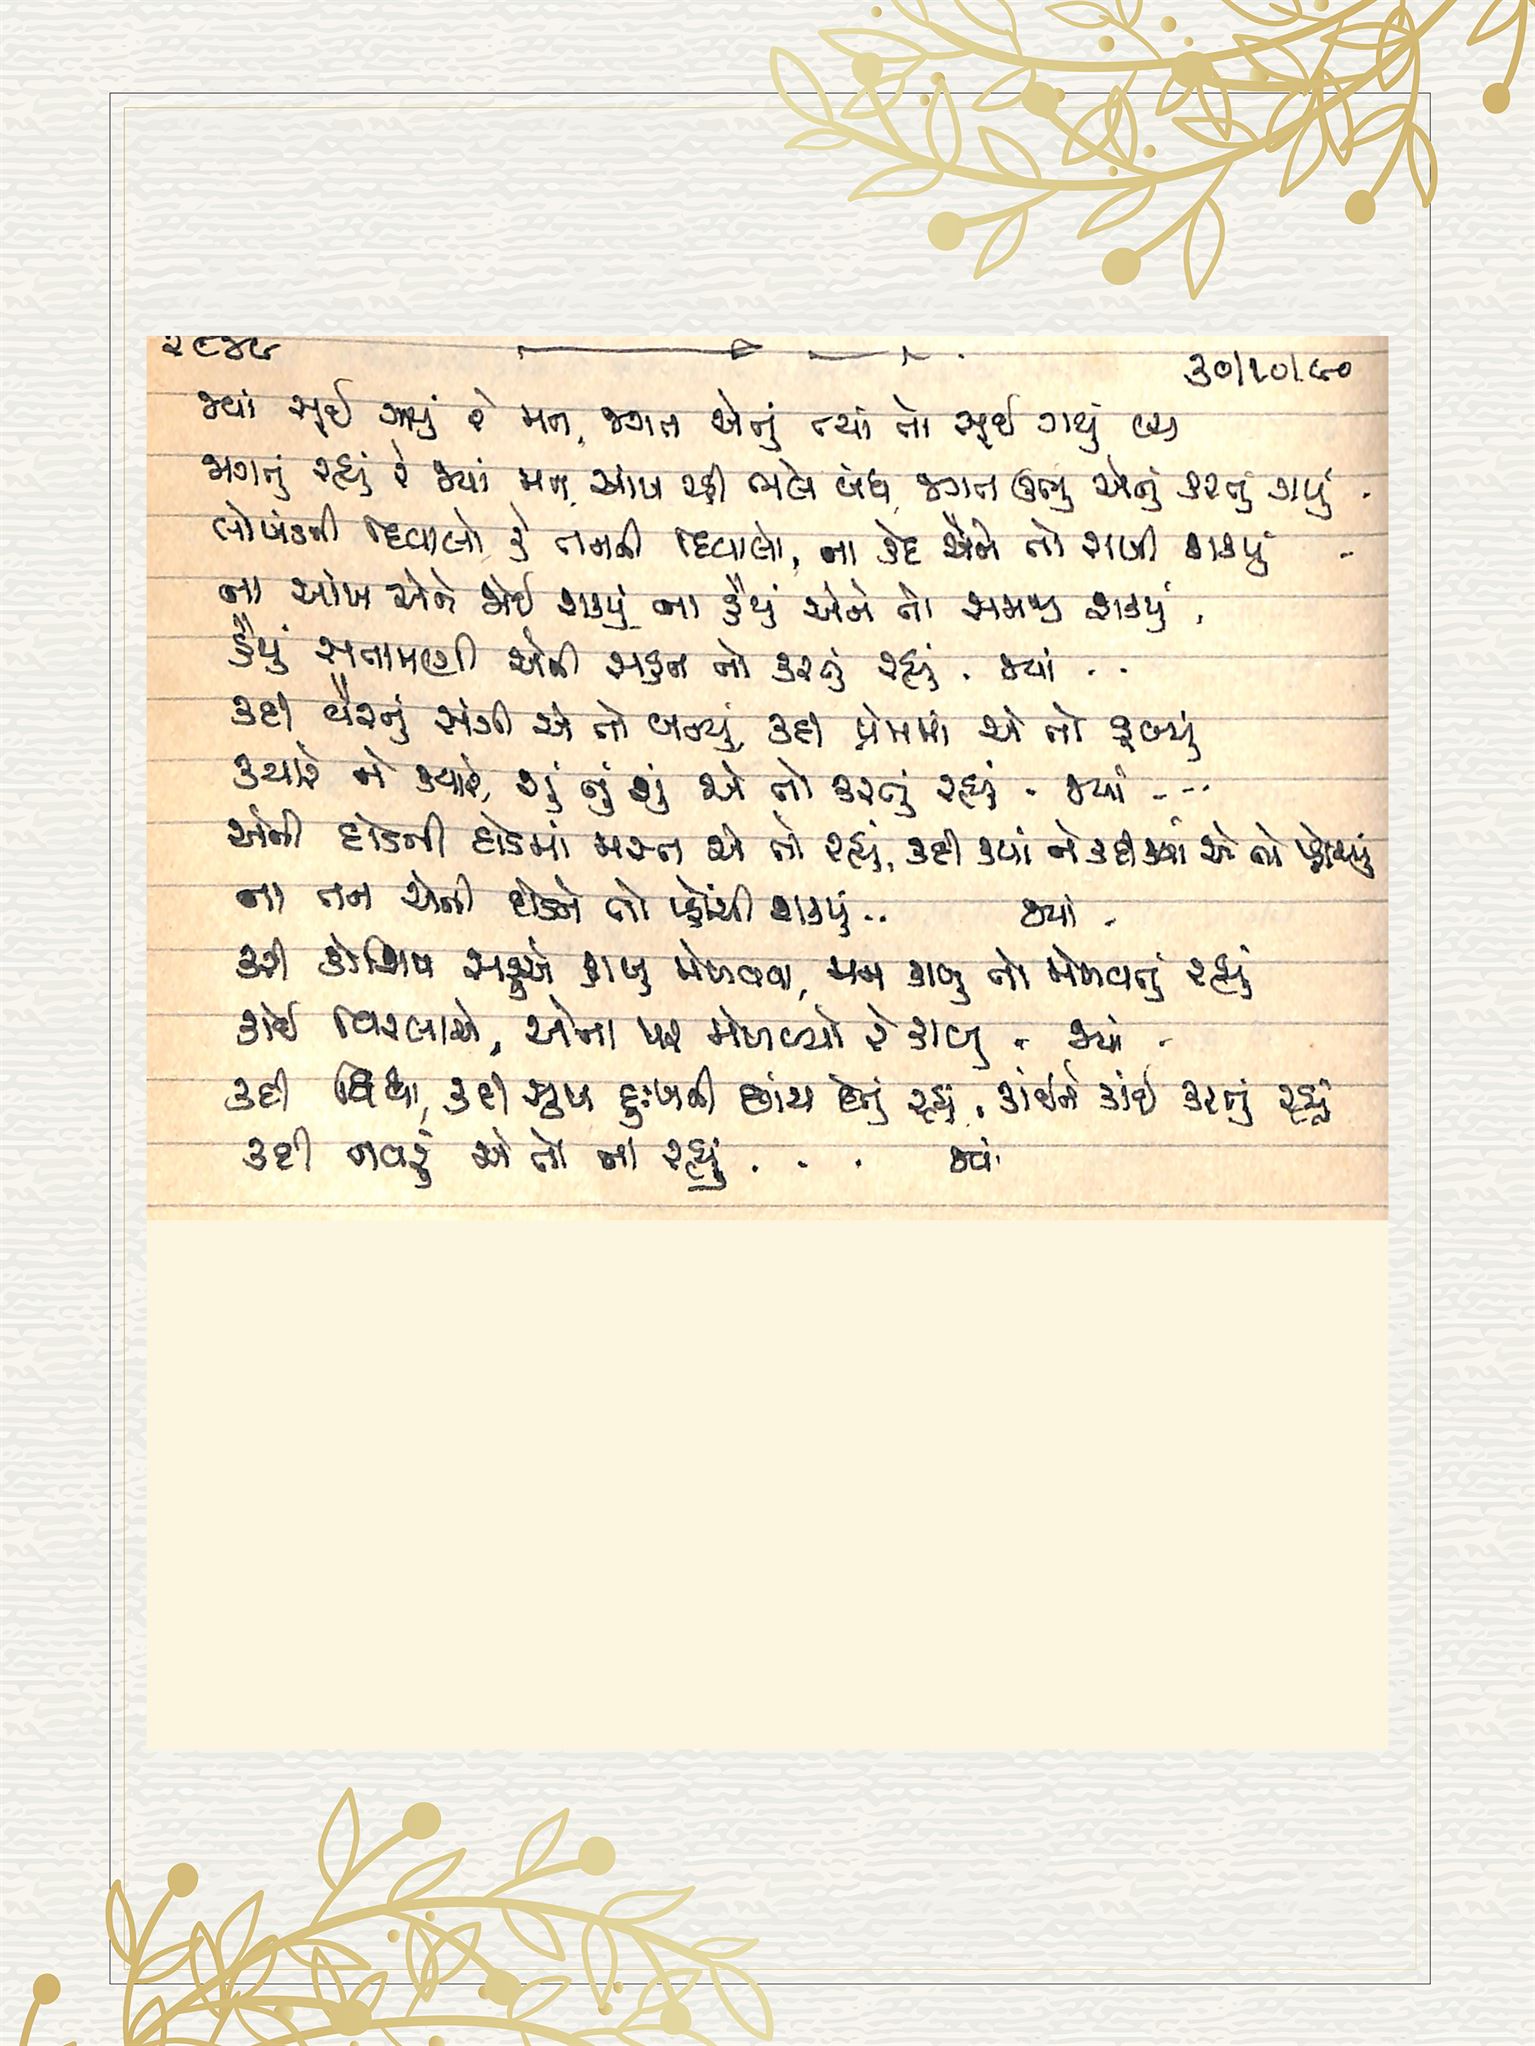 ૨૮૪૮
૩૦/૧૦/૯૦
જ્યાં સૂઈ ગયું રે મન, જગત એનું ત્યાં તો સૂઈ ગયું
જાગતું રહ્યું રે જ્યાં મન, આંખ રહી ભલે બંધ, જગત ઊભું એનું કરતું ગયું.
લોખંડની દિવાલો કે તનની દિવાલો, ના કેદ એને તો રાખી શક્યું -
ના આંખ એને જોઈ શક્યું ના હૈયું એને તો સમજી શક્યું.
હૈયું સતામણી એની સહન તો કરતું રહ્યું. જ્યાં ..
કદી વૈરનું સંગી એ તો બન્યું, કદી પ્રેમમાં એ તો ડૂબ્યું
ક્યારે ને ક્યારે, શું નું શું એ તો કરતું રહ્યું - જ્યાં ---
એની દોડની દોડમાં મસ્ત એ તો રહ્યું, કદી ક્યાં ને કદી ક્યાં એ તો પ્હોંચ્યું
ના તન એની દોડને તો પ્હોંચી શક્યું.. જ્યાં -
કરી કોશિષ સહુએ કાબુ મેળવવા, મન કાબુ તો મેળવતું રહ્યું
કોઈ વિરલાએ, એના પર મેળવ્યો રે કાબુ - જ્યાં -
કદી ચિંતા, કદી સુખ દુઃખની છાંય દેતું રહ્યું, કાંઈને કાંઈ કરતું રહ્યું
કદી નવરું એ તો ના રહ્યું . . . જ્યાં